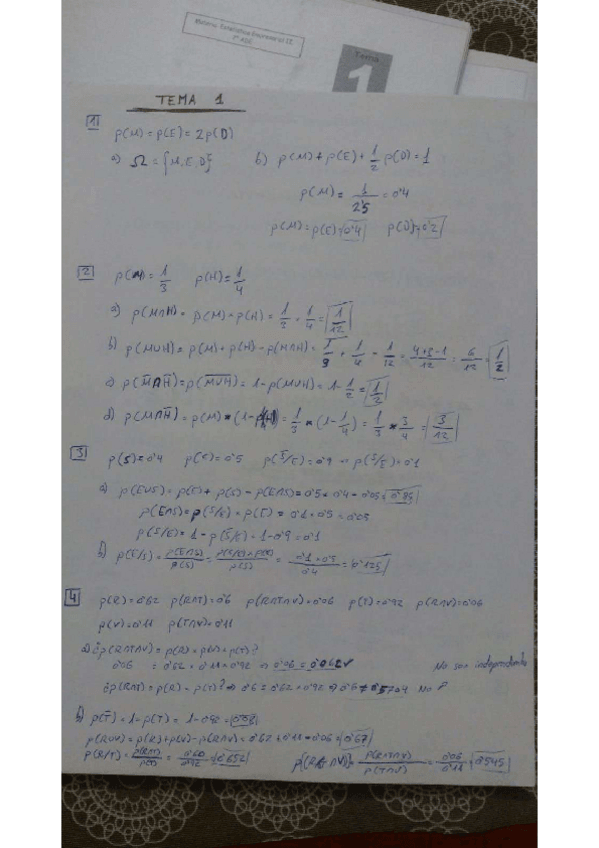 Materia: Estadística Empresarial II
Tema
1
TEMA 1
1
p(M) = p(E) = 2p(D)
a) Ω = {M, E, D}
b) p(M) + p(E) + 1/2 p(D) = 1
p(M) = 1/2'5 = 0'4
p(M) = p(E) = 0'4 p(D) = 0'2
2
p(M) = 1/3 p(H) = 1/4
a) p(M∩H) = p(M) * p(H) = 1/3 * 1/4 = 1/12
b) p(M∪H) = p(M) + p(H) - p(M∩H) = 1/3 + 1/4 - 1/12 = 4+3-1/12 = 6/12 = 1/2
c) p(M̅∩H̅) = p(M̅∪H̅) = 1 - p(M∪H) = 1 - 1/2 = 1/2
d) p(M∩H̅) = p(M) * (1 - p(H)) = 1/3 * (1 - 1/4) = 1/3 * 3/4 = 3/12
3
p(S) = 0'4 p(E) = 0'5 p(S̅/E) = 0'9 p(S/E) = 0'1
a) p(E∪S) = p(E) + p(S) - p(E∩S) = 0'5 + 0'4 - 0'05 = 0'85
p(E∩S) = p(S/E) * p(E) = 0'1 * 0'5 = 0'05
p(S/E) = 1 - p(S̅/E) = 1 - 0'9 = 0'1
b) p(E/S) = p(E∩S)/p(S) = p(S/E) * p(E)/p(S) = 0'1 * 0'5/0'4 = 0'125
4
p(R) = 0'62 p(R∩T) = 0'6 p(R∩T∩V) = 0'06 p(T) = 0'92 p(R∩V) = 0'06
p(V) = 0'11 p(T∩V) = 0'11
a) ¿p(R∩T∩V) = p(R) * p(V) * p(T)?
0'06 = 0'62 * 0'11 * 0'92 → 0'06 = 0'062 V
No son independientes
¿p(R∩T) = p(R) * p(T)? → 0'6 = 0'62 * 0'92 → 0'6 ≠ 0'5704 No
b) p(T̅) = 1 - p(T) = 1 - 0'92 = 0'08
p(R∪V) = p(R) + p(V) - p(R∩V) = 0'62 + 0'11 - 0'06 = 0'67
p(R/T) = p(R∩T)/p(T) = 0'60/0'92 = 0'652
p(R/T∩V) = p(R∩T∩V)/p(T∩V) = 0'06/0'11 = 0'545